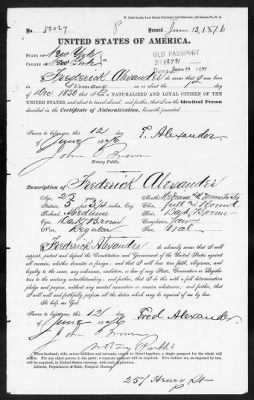 50029 8
Issued June 13, 1876
UNITED STATES OF AMERICA.
STATE OF New York
OLD PASSPORT
I Frederick Alexander do swear that I was born
in Germany
Dec 1850 that I am a NATURALIZED AND LOYAL CITIZEN OF THE
UNITED STATES, and about to travel abroad; and further, that I am the Identical Person
described in the Certificate of Naturalization, herewith presented
Sworn to before me, this 12 day
of June 1876 F. Alexander
John Brown
Notary Public.
Description of Frederick Alexander
Age: 25 Mouth: Medium
Stature: 5
Forehead: Medium Hair: Dark Brown
Eyes: Dark Brown Complexion: Fair
Nose: Regular Face: Oval
I, Frederick Alexander do solemnly swear that I will
support, protect and defend the Constitution and Government of the United States against
all enemies, whether domestic or foreign; and that I will bear true faith, allegiance, and
loyalty to the same, any ordinance, resolution, or law of any State, Convention or Legisla-
ture to the contrary notwithstanding; and further, that I do this with a full determination
pledge and purpose, without any mental reservation or evasion whatsoever; and further,
that I will well and faithfully perform all the duties which may be required of me by law.
So help me God.
Sworn to before me, this 12 day
of June 1876 Fred Alexander
John Brown
Notary Public
257 Henry St